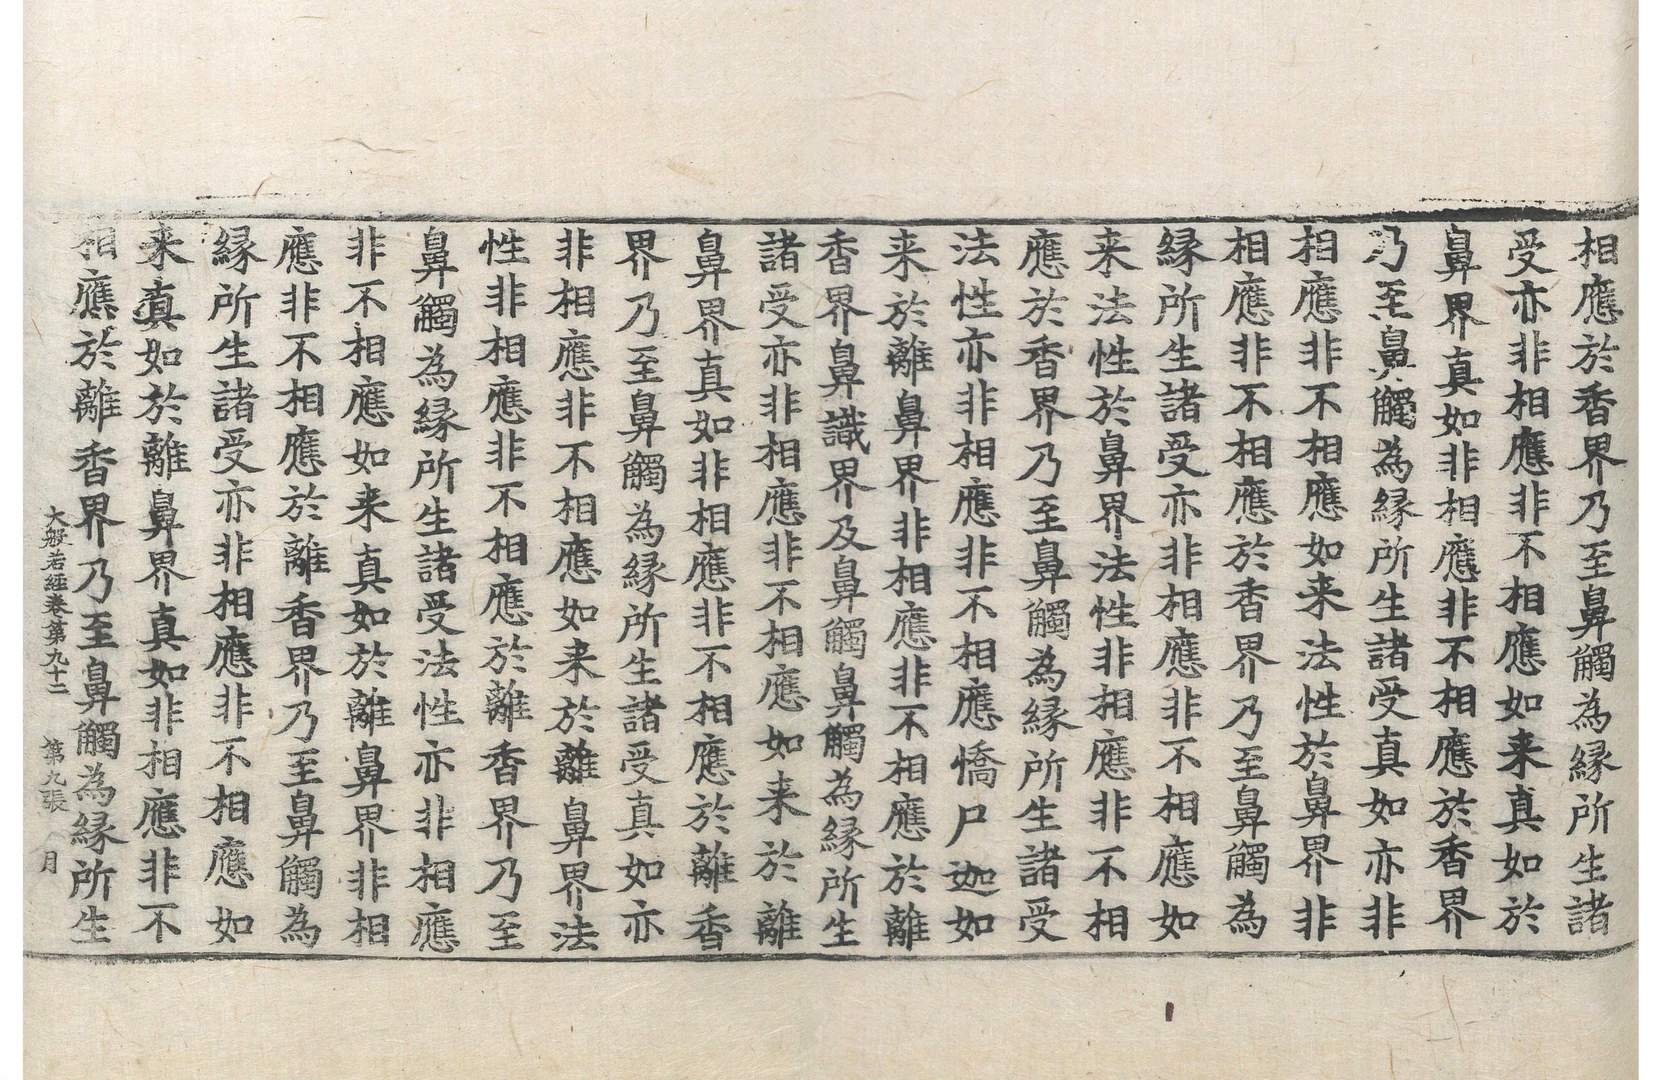 相應於香界乃至鼻觸為緣所生諸
受亦非相應非不相應如来真如於
鼻界真如非相應非不相應於香界
乃至鼻觸為緣所生諸受真如亦非
相應非不相應如来法性於鼻界非
相應非不相應於香界乃至鼻觸為
緣所生諸受亦非相應非不相應如
来法性於鼻界法性非相應非不相
應於香界乃至鼻觸為緣所生諸受
法性亦非相應非不相應憍尸迦如
来於離鼻界非相應非不相應於離
香界鼻識界及鼻觸鼻觸為緣所生
諸受亦非相應非不相應如来於離
鼻界真如非相應非不相應於離香
界乃至鼻觸為緣所生諸受真如亦
非相應非不相應如来於離鼻界法
性非相應非不相應於離香界乃至
鼻觸為緣所生諸受法性亦非相應
非不相應如来真如於離鼻界非相
應非不相應於離香界乃至鼻觸為
緣所生諸受亦非相應非不相應如
来真如於離鼻界真如非相應非不
相應於離香界乃至鼻觸為緣所生
大般若經卷第九十二 第九張 月